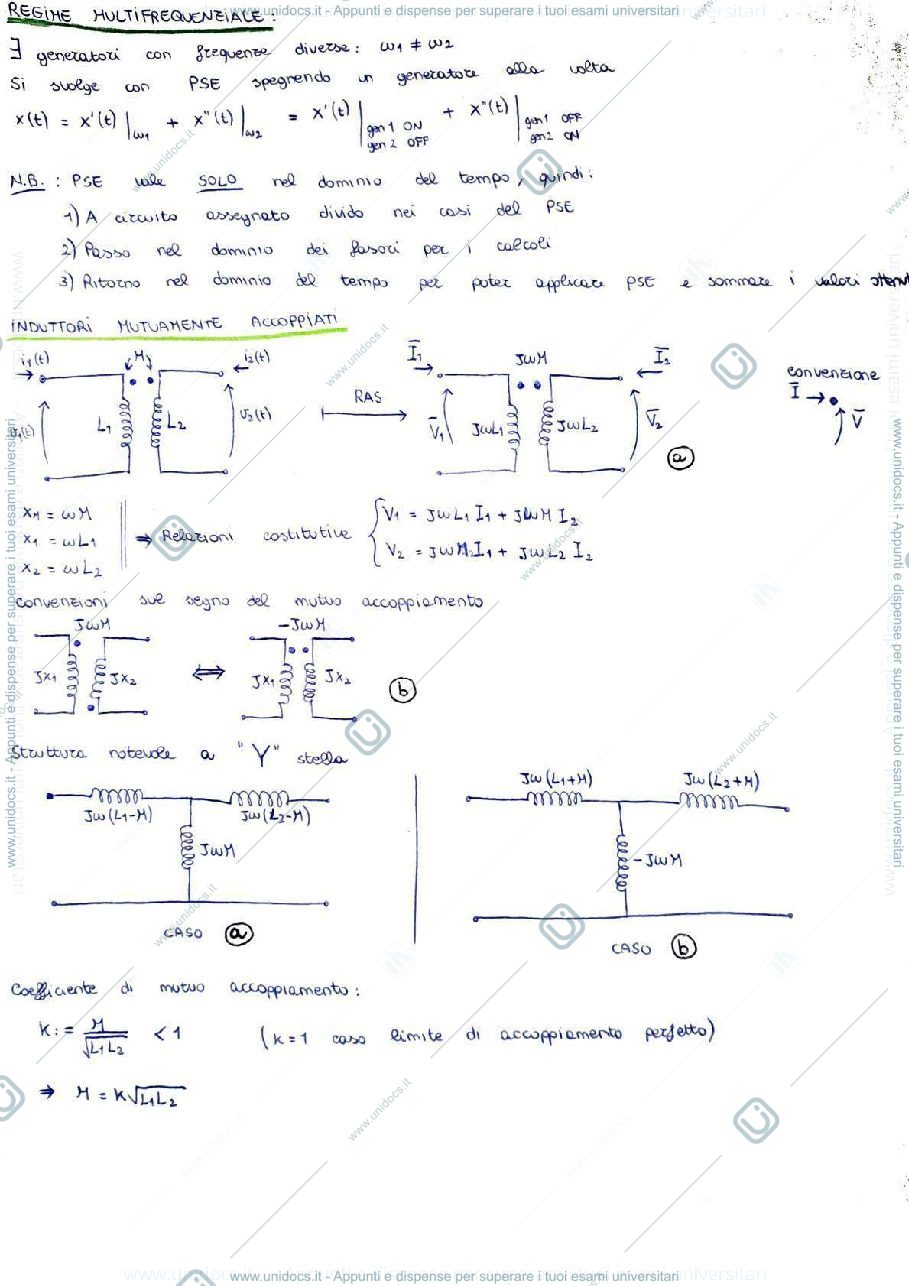 www.unidocs.it - Appunti e dispense per superare i tuoi esami universitari
REGIME MULTIFREQUENZIALE:
∃ generatori con frequenze diverse: ω1 ≠ ω2
Si svolge con PSE spegnendo un generatore alla volta
x(t) = x'(t)|ω1 + x''(t)|ω2 = x'(t)|gen1 ON gen2 OFF + x''(t)|gen1 OFF gen2 ON
N.B.: PSE vale SOLO nel dominio del tempo, quindi:
1) A circuito assegnato divido nei casi del PSE
2) Passo nel dominio dei fasori per i calcoli
3) Ritorno nel dominio del tempo per poter applicare PSE e sommare i valori
INDUTTORI MUTUAMENTE ACCOPPIATI
i1(t) M i2(t)
L1 L2 v2(t)
RAS
I̅1 JωM I̅2
V̅1 JωL1 JωL2 V̅2
a
convenzione
I̅ V̅
XM = ωM
X1 = ωL1
X2 = ωL2
⇒ Relazioni costitutive
V1 = JωL1 I1 + JωM I2
V2 = JωM I1 + JωL2 I2
convenzioni sul segno del mutuo accoppiamento
JωM ⇔ -JωM
JX1 JX2 JX1 JX2
b
Struttura notevole a "Y" stella
Jω(L1-M) Jω(L2-M)
JωM
CASO a
Jω(L1+M) Jω(L2+M)
-JωM
CASO b
Coefficiente di mutuo accoppiamento:
K := M/√L1L2 < 1 (K=1 caso limite di accoppiamento perfetto)
⇒ M = K√L1L2
www.unidocs.it - Appunti e dispense per superare i tuoi esami universitari